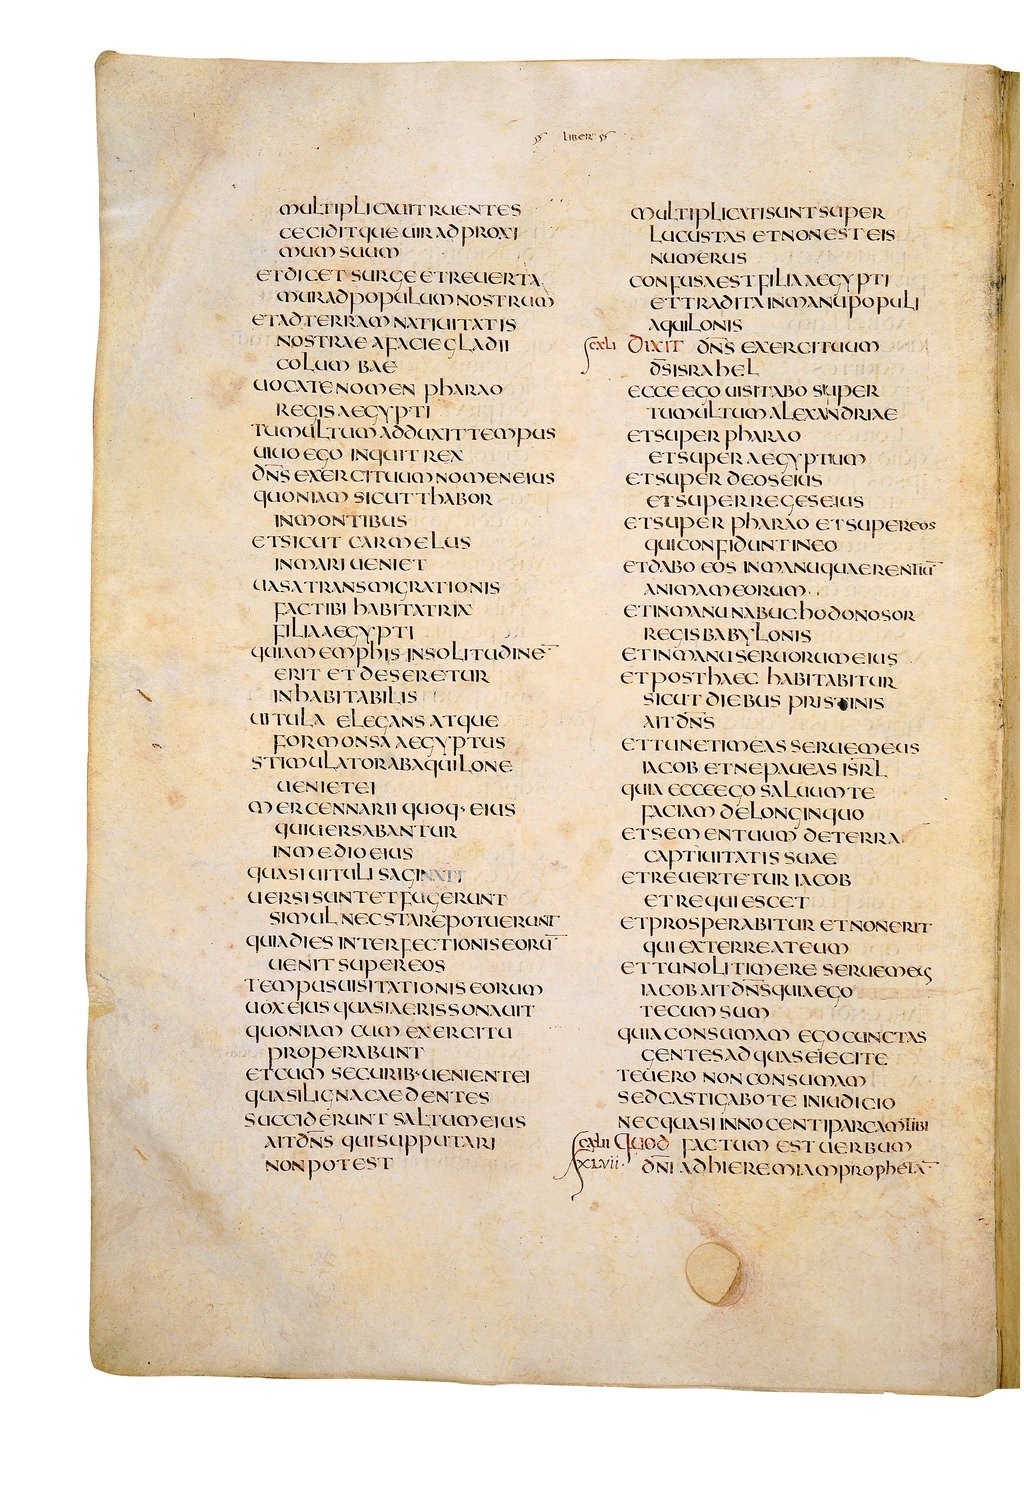 LIBER
MULTIPLICAUIT RUENTES
CECIDITQUE UIR AD PROXI
MUM SUUM
ET DICET SURGE ET REUERTA
MUR AD POPULUM NOSTRUM
ET AD TERRAM NATIUITATIS
NOSTRAE A FACIE GLADII
COLUMBAE
UOCATE NOMEN PHARAO
REGIS AEGYPTI
TUMULTUM ADDUXIT TEMPUS
UIUO EGO INQUIT REX
DN̄S EXERCITUUM NOMEN EIUS
QUONIAM SICUT THABOR
IN MONTIBUS
ET SICUT CARMELUS
IN MARI UENIET
UASA TRANSMIGRATIONIS
FAC TIBI HABITATRIX
FILIA AEGYPTI
QUIA MEMPHIS IN SOLITUDINĒ
ERIT ET DESERETUR
INHABITABILIS
UITULA ELEGANS ATQUE
FORMONSA AEGYPTUS
STIMULATOR AB AQUILONE
UENIET EI
MERCENNARII QUOQ· EIUS
QUI UERSABANTUR
IN MEDIO EIUS
QUASI UITULI SAGINATI
UERSI SUNT ET FUGERUNT
SIMUL NEC STARE POTUERUNT
QUIA DIES INTERFECTIONIS EORŪ
UENIT SUPER EOS
TEMPUS UISITATIONIS EORUM
UOX EIUS QUASI AERIS SONAUIT
QUONIAM CUM EXERCITU
PROPERABUNT
ET CUM SECURIB· UENIENT EI
QUASI LIGNA CAEDENTES
SUCCIDERUNT SALTUM EIUS
AIT DN̄S QUI SUPPUTARI
NON POTEST
MULTIPLICATI SUNT SUPER
LUCUSTAS ET NON EST EIS
NUMERUS
CONFUSA EST FILIA AEGYPTI
ET TRADITA IN MANU POPULI
AQUILONIS
CXLI DIXIT DN̄S EXERCITUUM
D̄S ISRAHEL
ECCE EGO UISITABO SUPER
TUMULTUM ALEXANDRIAE
ET SUPER PHARAO
ET SUPER AEGYPTUM
ET SUPER DEOS EIUS
ET SUPER REGES EIUS
ET SUPER PHARAO ET SUPER EOS
QUI CONFIDUNT IN EO
ET DABO EOS IN MANU QUAERENTIŪ
ANIMAM EORUM
ET IN MANU NABUCHODONOSOR
REGIS BABYLONIS
ET IN MANU SERUORUM EIUS
ET POST HAEC HABITABITUR
SICUT DIEBUS PRISTINIS
AIT DN̄S
ET TU NE TIMEAS SERUE MEUS
IACOB ET NE PAUEAS ISR̄L
QUIA ECCE EGO SALUUM TE
FACIAM DE LONGINQUO
ET SEMEN TUUM DE TERRA
CAPTIUITATIS SUAE
ET REUERTETUR IACOB
ET REQUIESCET
ET PROSPERABITUR ET NON ERIT
QUI EXTERREAT EUM
ET TU NOLI TIMERE SERUE MEUS
IACOB AIT DN̄S QUIA EGO
TECUM SUM
QUIA CONSUMAM EGO CUNCTAS
GENTES AD QUAS EIECI TE
TE UERO NON CONSUMAM
SED CASTIGABO TE IN IUDICIO
NEC QUASI INNOCENTI PARCAM TIBI
CXLII QUOD FACTUM EST UERBUM
XLVII· DN̄I AD HIEREMIAM PROPHETĀ